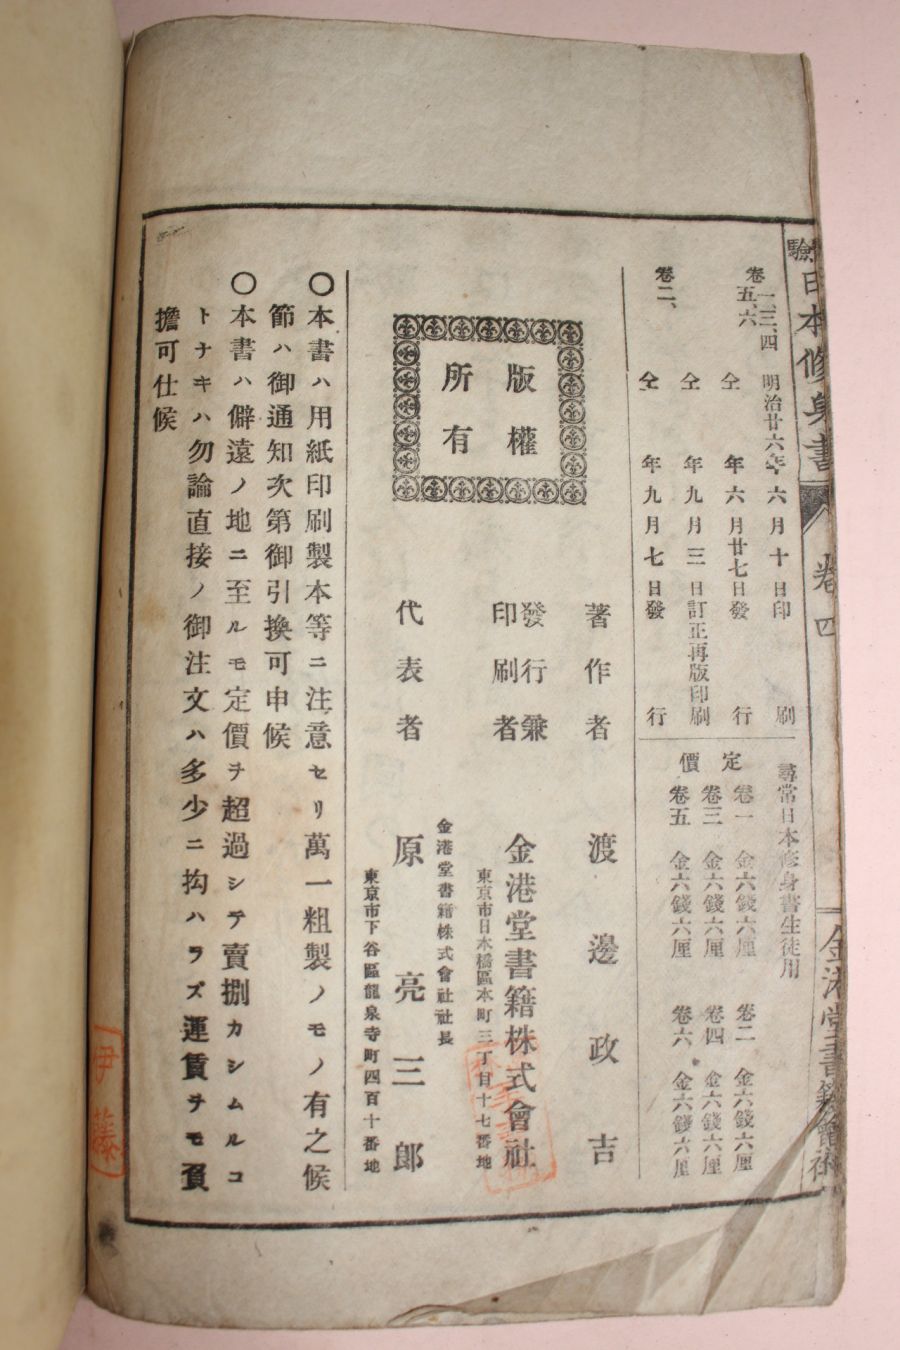 驗日本修身書
卷四
金港堂書籍會社
卷一、三、四
五、六
明治廿六年六月十日印刷
仝年六月廿七日發行
仝年九月三日訂正再版印刷
卷二、
仝年九月七日發行
尋常日本修身書生徒用
定價
卷一 金六錢六厘 卷二 金六錢六厘
卷三 金六錢六厘 卷四 金六錢六厘
卷五 金六錢六厘 卷六 金六錢六厘
版權
所有
著作者 渡邊政吉
發行兼
印刷者
金港堂書籍株式會社
東京市日本橋區本町三丁目十七番地
金港堂書籍株式會社社長
代表者 原亮三郎
東京市下谷區龍泉寺町四百十番地
〇本書ハ用紙印刷製本等ニ注意セリ萬一粗製ノモノ有之候
節ハ御通知次第御引換可申候
〇本書ハ僻遠ノ地ニ至ルモ定價ヲ超過シテ賣捌カシムルコ
トナキハ勿論直接ノ御注文ハ多少ニ拘ハラズ運賃ヲモ負
擔可仕候
伊藤